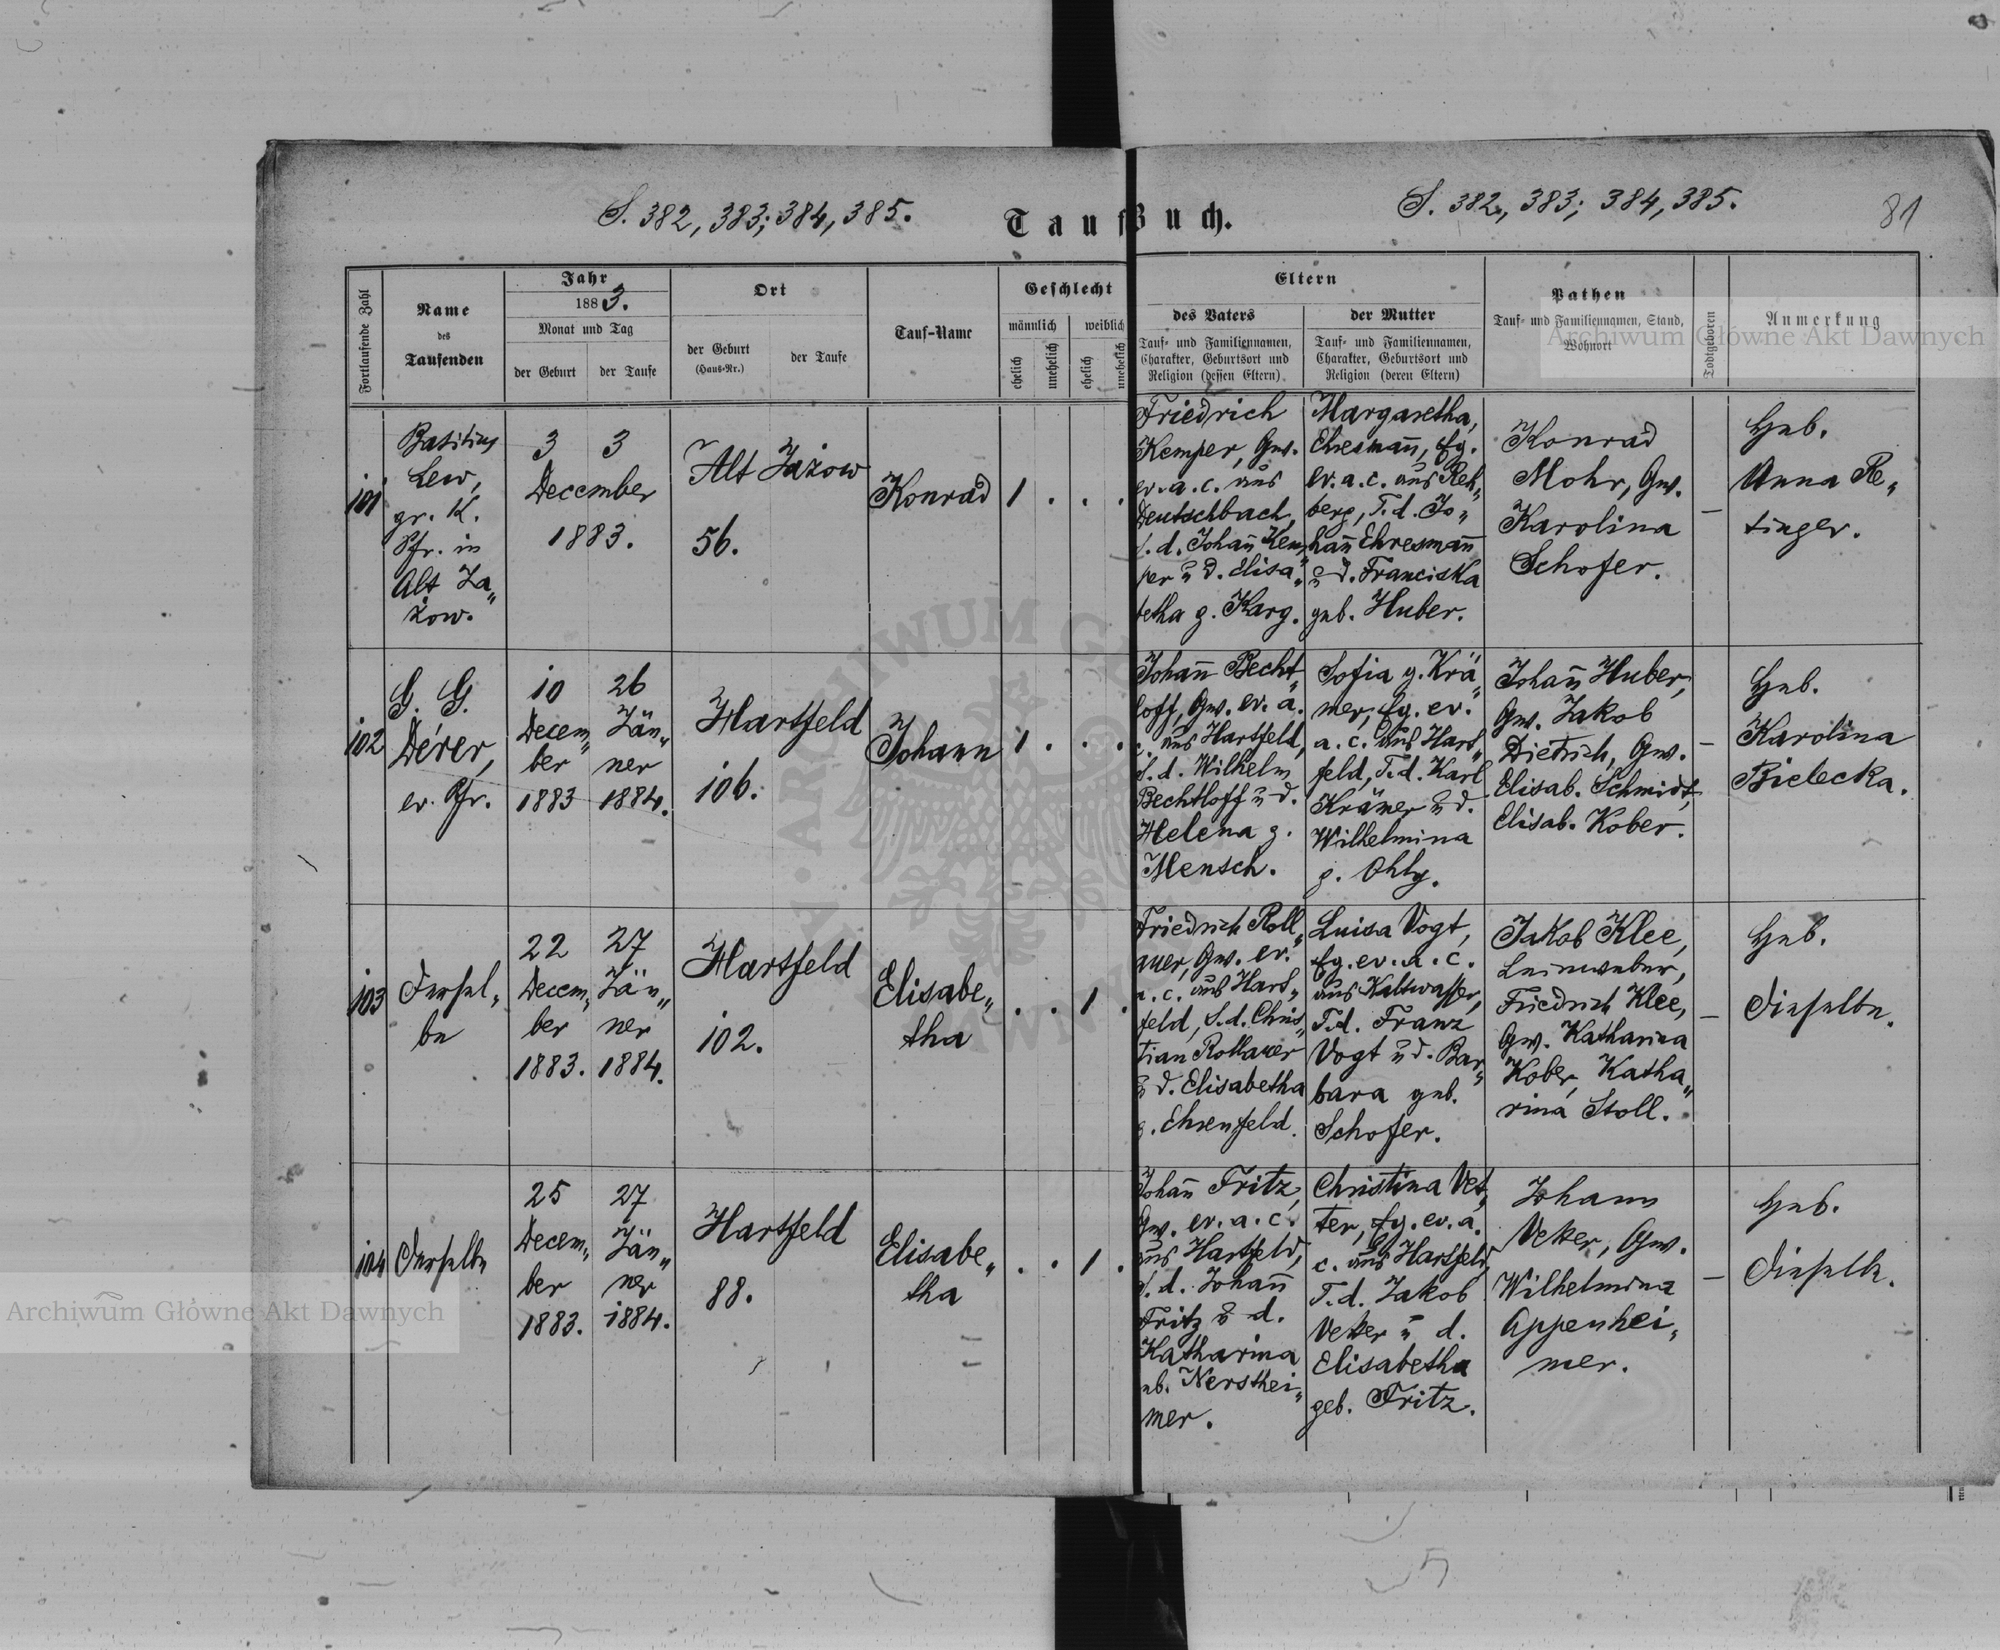 S. 382, 383; 384, 385.
Taufbuch.
S. 382, 383; 384, 385.
81
Fortlaufende Zahl
Name
des
Taufenden
Jahr
1883.
Monat und Tag
der Geburt
der Taufe
Ort
der Geburt
(Haus-Nr.)
der Taufe
Tauf-Name
Geschlecht
männlich
weiblich
ehelich
unehelich
ehelich
unehelich
Eltern
des Vaters
Tauf- und Familiennamen,
Charakter, Geburtsort und
Religion (dessen Eltern)
der Mutter
Tauf- und Familiennamen,
Charakter, Geburtsort und
Religion (deren Eltern)
Pathen
Tauf- und Familiennamen, Stand,
Wohnort
Todtgeboren
Anmerkung
101
Basilius
Lew,
gr. K.
Pfr. in
Alt Ja„
żow.
3 3
December
1883.
Alt Jażow
56.
Konrad
1 . . .
Friedrich
Kemper, Gw.
ev. a. c. aus
Deutschbach,
S. d. Johañ Kem„
per u d. Elisa„
betha g. Karg.
Margaretha,
Ehresmañ, Eg.
ev. a. c. aus Reh„
berg, T. d. Jo„
hañ Ehresmañ
u d. Franciska
geb. Huber.
Konrad
Mohr, Gw.
Karolina
Schofer.
–
Heb.
Anna Re„
tinger.
102
G. G.
Dérer,
ev. Pfr.
10
Decem„
ber
1883
26
Jän„
ner
1884.
Hartfeld
106.
Johann
1 . . .
Johañ Becht„
loff, Gw. ev. a.
c. aus Hartfeld,
S. d. Wilhelm
Bechtloff u d.
Helena g.
Mensch.
Sofia g. Krä„
mer, Eg. ev.
a. c. aus Hart„
feld, T. d. Karl
Krämer u d.
Wilhelmina
g. Ohly.
Johañ Huber,
Gw. Jakob
Dietrich, Gw.
Elisab. Schmidt,
Elisab. Kober.
–
Heb.
Karolina
Bielecka.
103
Dersel„
be
22
Decem„
ber
1883.
27
Jän„
ner
1884.
Hartfeld
102.
Elisabe„
tha
. . 1 .
Friedrich Roll„
auer, Gw. ev.
a. c. aus Hart„
feld, S. d. Chris„
tian Rollauer
u d. Elisabetha
g. Ehrenfeld.
Luisa Vogt,
Eg. ev. a. c.
aus Kaltwasser,
T. d. Franz
Vogt u d. Bar„
bara geb.
Schofer.
Jakob Klee,
Leinweber,
Friedrich Klee,
Gw. Katharina
Kober, Katha„
rina Stoll.
–
Heb.
Dieselbe.
104
Derselbe
25
Decem„
ber
1883.
27
Jän„
ner
1884.
Hartfeld
88.
Elisabe„
tha
. . 1 .
Johañ Fritz,
Gw. ev. a. c.
aus Hartfeld,
S. d. Johañ
Fritz u d.
Katharina
geb. Nersthei„
mer.
Christina Vet„
ter, Eg. ev. a.
c. aus Hartfeld,
T. d. Jakob
Vetter u d.
Elisabetha
geb. Fritz.
Johann
Vetter, Gw.
Wilhelmina
Appenhei„
mer.
–
Heb.
Dieselbe.
Archiwum Główne Akt Dawnych
Archiwum Główne Akt Dawnych